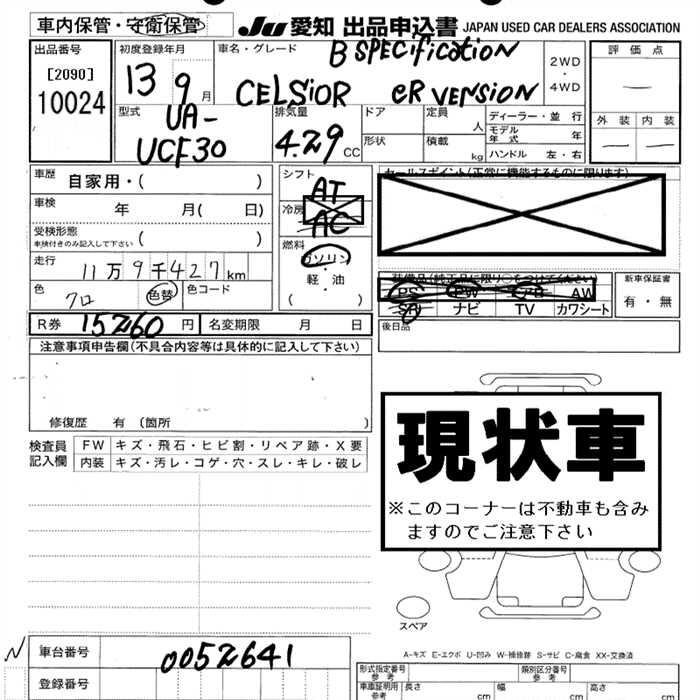 車内保管・守衛保管
JU 愛知 出品申込書 JAPAN USED CAR DEALERS ASSOCIATION
出品番号
[2090]
10024
初度登録年月
13 9月
車名・グレード
B SPECification
CELSIOR eR VERSION
2WD
・
4WD
評価点
外装 内装
型式
UA-
UCF30
排気量
4.29 CC
ドア
形状
定員 人
積載 kg
ディーラー・並行
モデル年式 年
ハンドル 左・右
車歴 自家用・( )
車検 年 月( 日)
受検形態
車検付きのみ記入して下さい ( )
走行
11万9千427km
色 クロ 色替 色コード
シフト
AT
冷房
AC
燃料
ガソリン
・
軽・油
( )
セールスポイント(正常に機能するものに限ります)
装備品(純正品に限り○をつけてください)
PS PW AW
SR ナビ TV カワシート
新車保証書
有・無
後日品
R券 15260円 名変期限 月 日
注意事項申告欄(不具合内容等は具体的に記入して下さい)
修復歴 有 (箇所 )
検査員
記入欄
FW キズ・飛石・ヒビ割・リペア跡・X要
内装 キズ・汚レ・コゲ・穴・スレ・キレ・破レ
現状車
※このコーナーは不動車も含み
ますのでご注意下さい
スペア
A-キズ E-エクボ U-凹み W-補修跡 S-サビ C-腐食 XX-交換済
N 車台番号 0052641
登録番号
形式指定番号
参考
類別区分番号
参考
車車証明用
参考
長さ cm 幅 cm 高さ cm